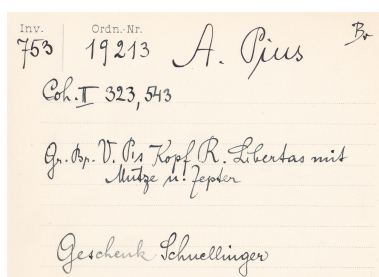 Inv. Ordn.-Nr. Br
753 19213 A. Pius
Coh. II 323, 543
Gr. Br. V. Pis Kopf R. Libertas mit
Mütze u. Zepter
Geschenk Schnellinger